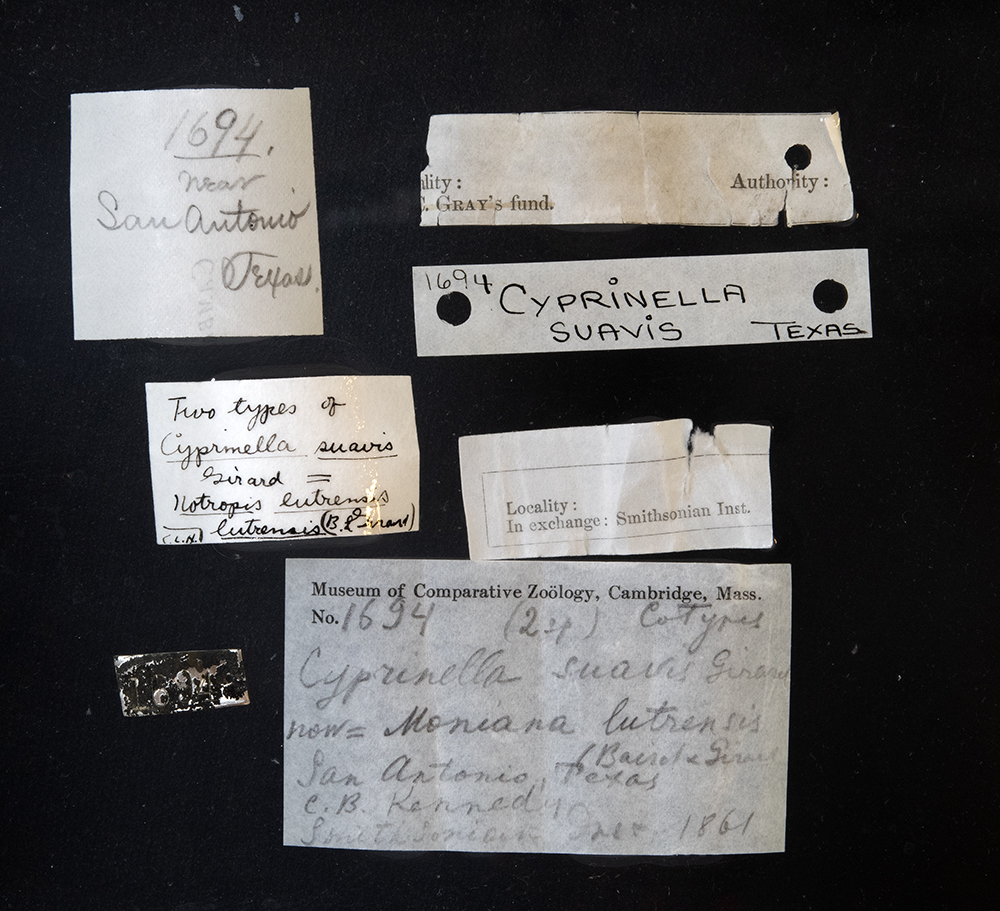 1694.
near
San Antonio
Texas.
lity:
Authority:
C. GRAY's fund.
1694
CYPRINELLA
SUAVIS
TEXAS
Two types of
Cyprinella suavis
Girard =
Notropis lutrensis
lutrensis (B. & Girard)
(C.L.H.)
Locality:
In exchange: Smithsonian Inst.
Museum of Comparative Zoölogy, Cambridge, Mass.
No. 1694 (2 sp) Cotypes
Cyprinella suavis Girard
now = Moniana lutrensis
(Baird & Girard
San Antonio, Texas
C. B. Kennedy
Smithsonian 1861